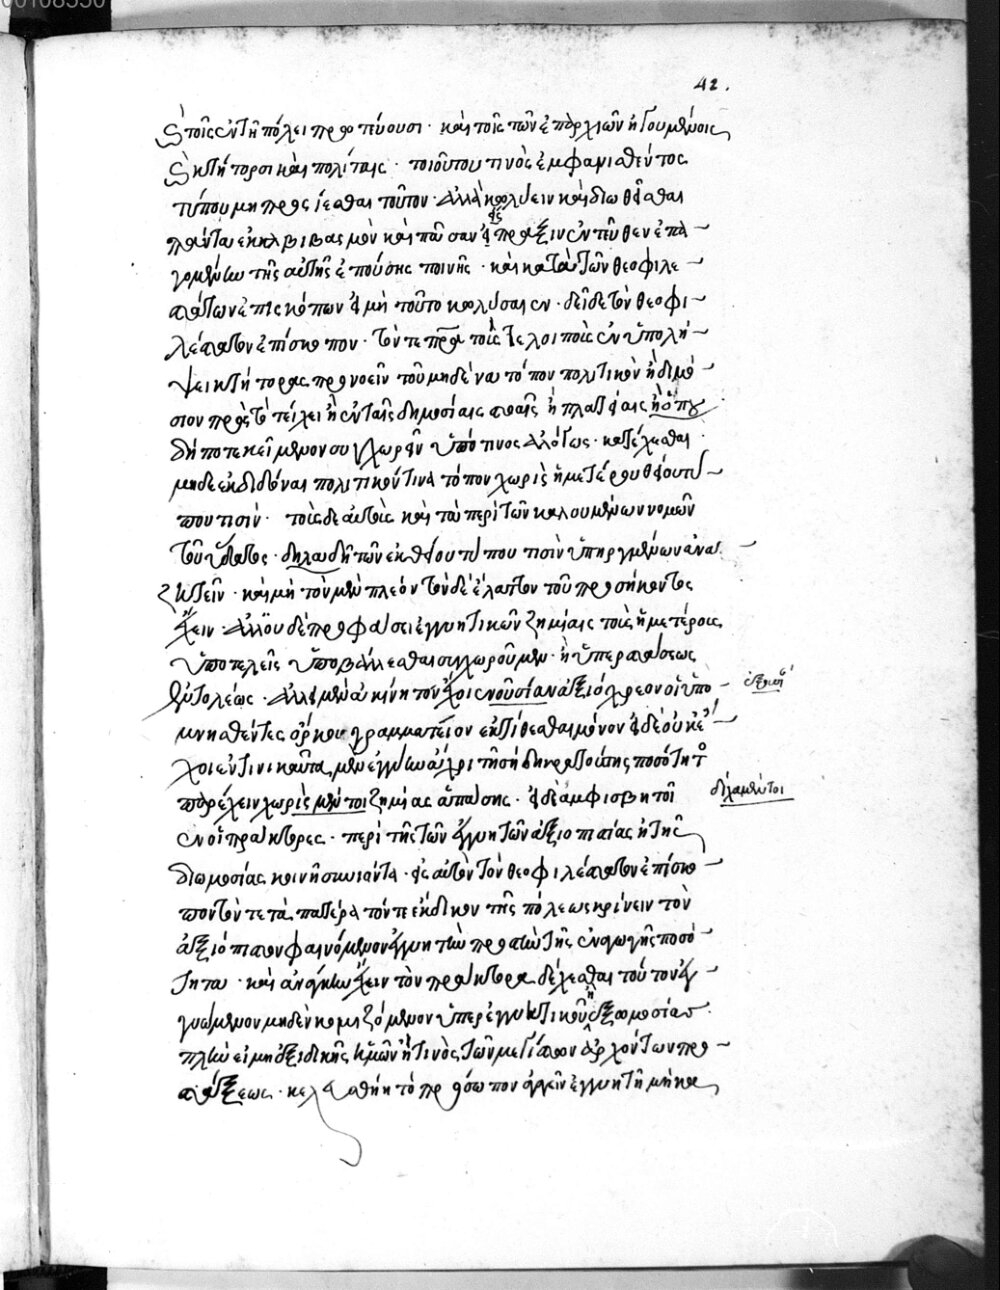 42.
τοῖς ἐν τῇ πόλει πρωτεύουσι· καὶ τοῖς τῶν ἐπαρχιῶν ἡγουμένοις
κτήτορσι καὶ πολίταις· τοιούτου τινὸς ἐμφανισθέντος
τύπου μὴ προσίεσθαι τοῦτον· ἀλλὰ κωλύειν καὶ διωθεῖσθαι
πάντα ἐκβιβασμὸν καὶ πᾶσαν πρᾶξιν ἐντεῦθεν ἐπα
γομένην τῆς αὐτῆς ἐπούσης ποινῆς· καὶ κατὰ τῶν θεοφιλε
στάτων ἐπισκόπων εἰ μὴ τοῦτο κωλύσαιεν· δεῖ δὲ τὸν θεοφι
λέστατον ἐπίσκοπον· τόν τε πατέρα τούς τε λοιποὺς ἐν ὑπολή
ψει κτήτορας προνοεῖν τοῦ μηδένα τόπον πολιτικὸν ἢ δημό
σιον πρὸς τὸ τείχει ἢ ἐν ταῖς δημοσίαις στοαῖς ἢ πλατείαις ἢ ὅπου
δήποτε κείμενον συγχωρεῖν ὑπό τινος ἀλόγως κατέχεσθαι·
μηδὲ ἐκδιδόναι πολιτικόν τινα τόπον χωρὶς ἡμετέρου θείου τύ
που τισίν· τοῖς δὲ αὐτοῖς καὶ τὰ περὶ τῶν καλουμένων νομῶν
τοῦ ὕδατος· δηλαδὴ τῶν ἐκ θείου τύπου τισὶν ὑπηργμένων ἀνα
ζητεῖν· καὶ μὴ τὸν μὲν πλέον τὸν δὲ ἔλαττον τοῦ προσήκοντος
ἔχειν· ἀλλ' οὐδὲ προφάσει ἐγγυητικῶν ζημίαις τοὺς ἡμετέρους
ὑποτελεῖς ὑποβάλλεσθαι συγχωροῦμεν· ἢ ὑπερστάσεως
ἐντολέως· ἀλλ' εἰ μὲν ἀκίνητον ἔχοιεν οὐσίαν ἀξιόχρεον οἱ ὑπο
μνησθέντες ὅρκου γραμματεῖον ἐκτίθεσθαι μόνον εἰ δὲ οὐκ ἔ
χοιεν τηνικαῦτα μὲν ἐγγύην ἄχρι τῆς διηρεσούσης ποσότητο
παρέχειν χωρὶς μέντοι ζημίας ἁπάσης· εἰ δὲ ἀμφισβητοῖ
διχα μέντοι
εν οἱ πράκτορες· περὶ τῆς τῶν ἐγγυητῶν ἀξιοπιστίας ἢ τῆς
διωμοσίας κοινῇ συνιόντα· εἰς αὐτὸν τὸν θεοφιλέστατον ἐπίσκο
πον τόν τε τὰ πατέρα τόν τε ἔκδικον τῆς πόλεως κρίνειν τὸν
ἀξιόπιστον φαινόμενον ἐγγυητὴν πρὸς τὴν τῆς ἐναγωγῆς ποσό
τητα· καὶ ἀνάγκην ἔχειν τὸν πράκτορα δέχεσθαι τοῦτον ἐγ
γυώμενον μηδὲν κομιζόμενον ὑπὲρ ἐγγυητικοῦ ἢ ἐξωμοσίας·
πλὴν εἰ μὴ ἐξ ἰδικῆς ἡμῶν ἤ τινος τῶν μεγίστων ἀρχόντων προ
στάξεως· κελευσθείη τὸ πρόσωπον ἀρκεῖν ἐγγυητῇ μὴ κα